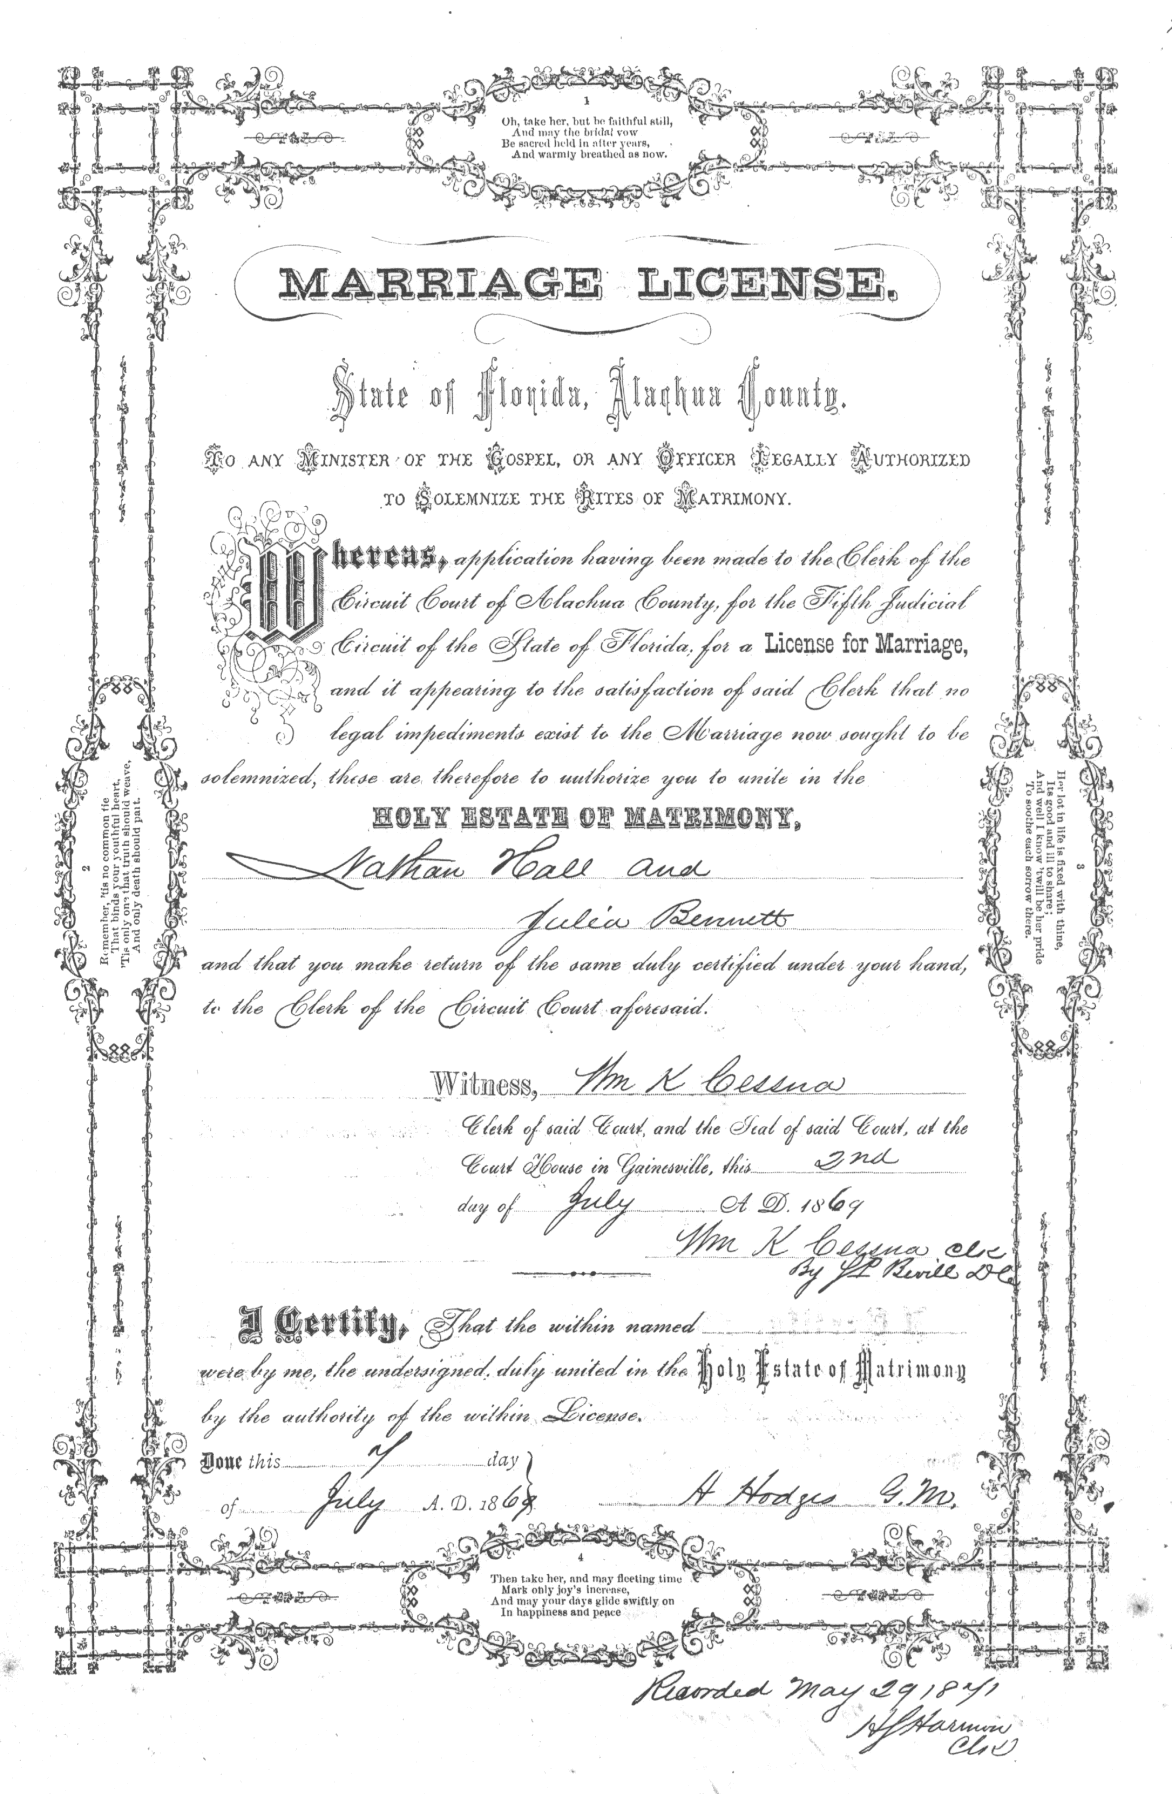 1
Oh, take her, but be faithful still,
And may the bridal vow
Be sacred held in after years,
And warmly breathed as now.
MARRIAGE LICENSE.
State of Florida, Alachua County.
TO ANY MINISTER OF THE GOSPEL, OR ANY OFFICER LEGALLY AUTHORIZED
TO SOLEMNIZE THE RITES OF MATRIMONY.
Whereas, application having been made to the Clerk of the
Circuit Court of Alachua County, for the Fifth Judicial
Circuit of the State of Florida, for a License for Marriage,
and it appearing to the satisfaction of said Clerk that no
legal impediments exist to the Marriage now sought to be
solemnized, these are therefore to authorize you to unite in the
HOLY ESTATE OF MATRIMONY,
Nathan Hall and
Julia Bennett
and that you make return of the same duly certified under your hand,
to the Clerk of the Circuit Court aforesaid.
Witness, Wm K Cessna
Clerk of said Court, and the Seal of said Court, at the
Court House in Gainesville, this 2nd
day of July A D. 1869
Wm K Cessna Clk
By J P Bevill D C
I Certify, That the within named
were by me, the undersigned, duly united in the Holy Estate of Matrimony
by the authority of the within License.
Done this 7 day
of July A. D. 1869
H Hodges G. M.
2
Remember, 'tis no common tie
That binds your youthful heart,
'Tis only one that truth should weave,
And only death should part.
3
Her lot in life is fixed with thine,
Its good and ill to share;
And well I know 'twill be her pride
To soothe each sorrow there.
4
Then take her, and may fleeting time
Mark only joy's increase,
And may your days glide swiftly on
In happiness and peace
Recorded May 29 1871
H S Harmon
Clk